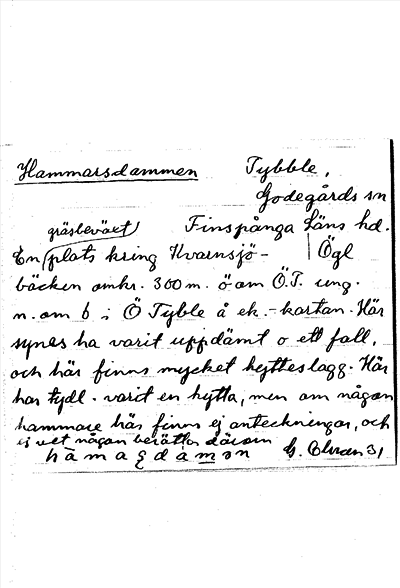 Hammarsdammen Tybble,
Godegårds sn
gräsbeväxt Finspånga Läns hd.
En plats kring Kvarnsjö- Ögl
bäcken omkr. 300 m. ö om Ö.T. ung.
n. om b i Ö Tybble å ek.-kartan. Här
synes ha varit uppdämt o ett fall,
och här finns mycket hytteslagg. Här
har tydl. varit en hytta, men om någon
hammare här finns ej anteckningar, och
ej vet någon berätta därom
G. 31